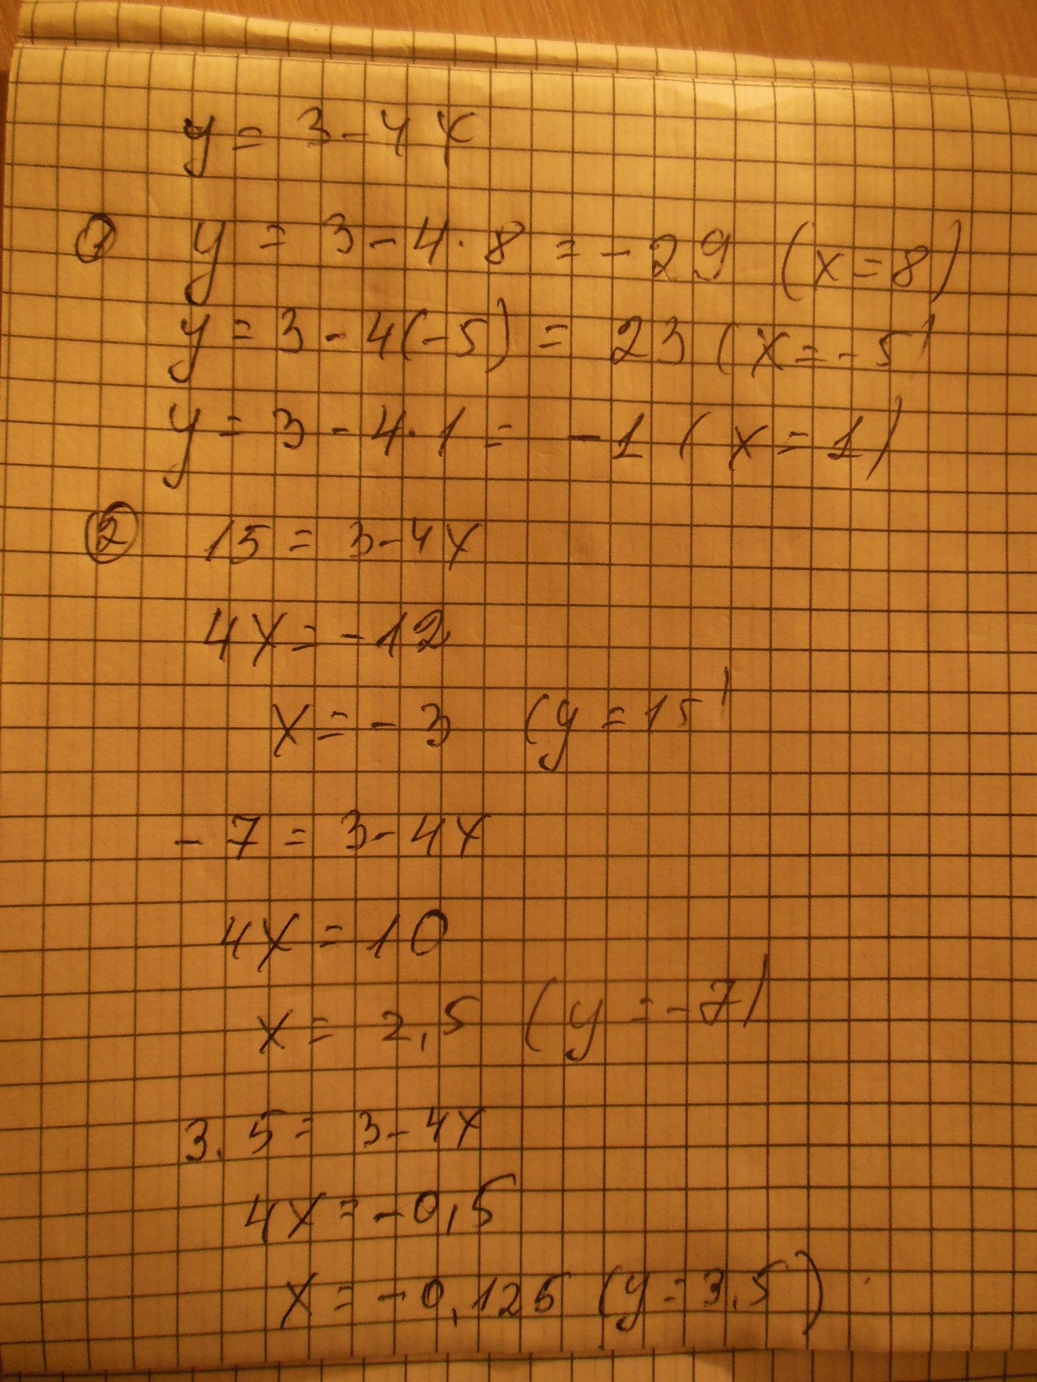 y = 3 - 4x
① y = 3 - 4 · 8 = - 29 (x = 8)
y = 3 - 4(-5) = 23 (x = - 5)
y = 3 - 4 · 1 = - 1 (x = 1)
② 15 = 3 - 4x
4x = - 12
x = - 3 (y = 15)
- 7 = 3 - 4x
4x = 10
x = 2,5 (y = - 7)
3.5 = 3 - 4x
4x = - 0,5
x = - 0,125 (y = 3.5)